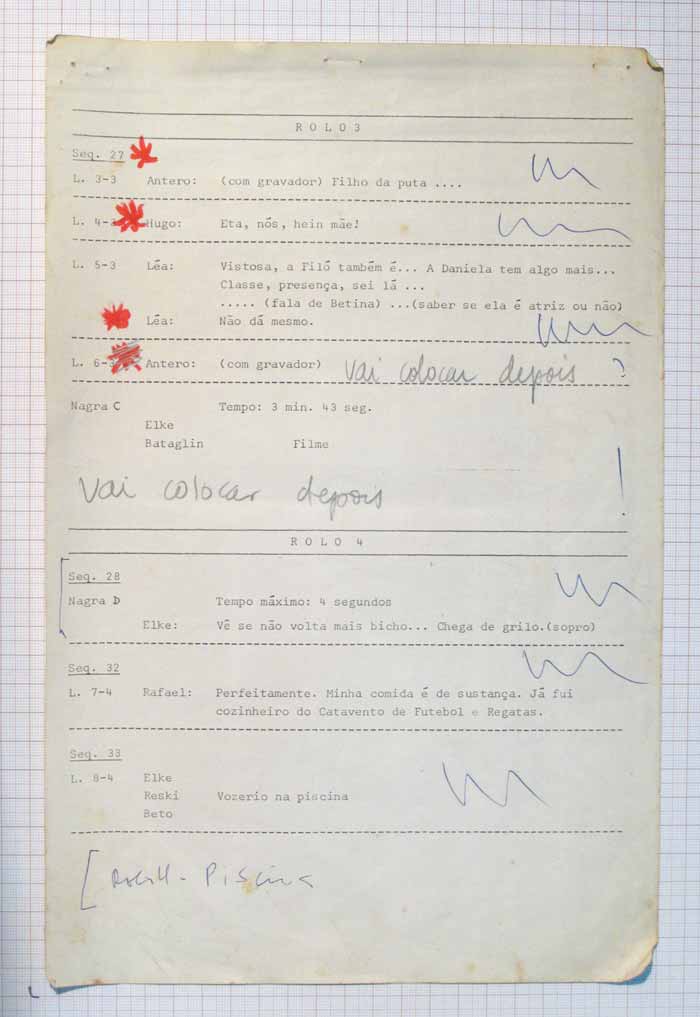 R O L O 3
Seq. 27
L. 3-3 Antero: (com gravador) Filho da puta ....
L. 4- Hugo: Eta, nós, hein mãe!
L. 5-3 Léa: Vistosa, a Filó também é... A Daniela tem algo mais...
Classe, presença, sei lá ...
..... (fala de Betina) ...(saber se ela é atriz ou não)
Léa: Não dá mesmo.
L. 6-3 Antero: (com gravador) Vai colocar depois ?
Nagra C Tempo: 3 min. 43 seg.
Elke
Bataglin Filme
Vai colocar depois !
R O L O 4
Seq. 28
Nagra D Tempo máximo: 4 segundos
Elke: Vê se não volta mais bicho... Chega de grilo.(sopro)
Seq. 32
L. 7-4 Rafael: Perfeitamente. Minha comida é de sustança. Já fui
cozinheiro do Catavento de Futebol e Regatas.
Seq. 33
L. 8-4 Elke
Reski Vozerio na piscina
Beto
[ - Piscina